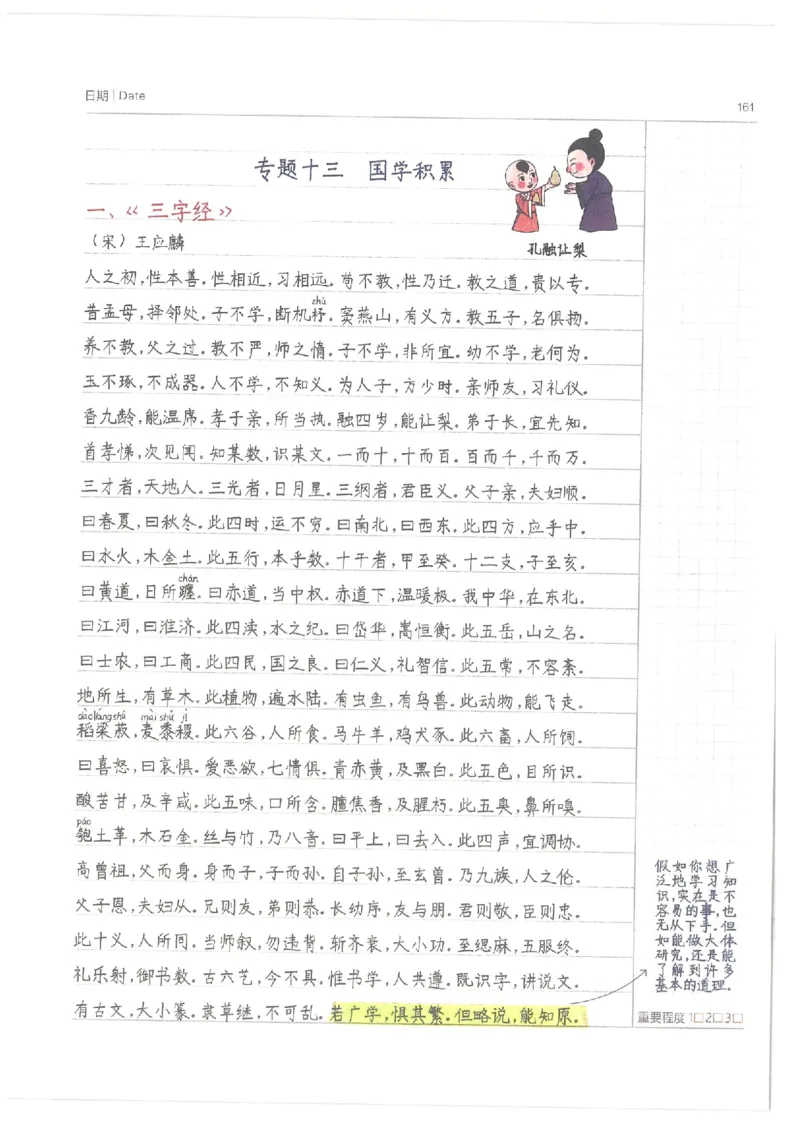 日期 | Date
161
专题十三 国学积累
一、《三字经》
(宋)王应麟
孔融让梨
人之初,性本善.性相近,习相远.苟不教,性乃迁.教之道,贵以专.
zhù
昔孟母,择邻处.子不学,断机杼.窦燕山,有义方.教五子,名俱扬.
养不教,父之过.教不严,师之惰.子不学,非所宜.幼不学,老何为.
玉不琢,不成器.人不学,不知义.为人子,方少时.亲师友,习礼仪.
香九龄,能温席.孝于亲,所当执.融四岁,能让梨.弟于长,宜先知.
首孝悌,次见闻.知某数,识某文.一而十,十而百.百而千,千而万.
三才者,天地人.三光者,日月星.三纲者,君臣义.父子亲,夫妇顺.
曰春夏,曰秋冬.此四时,运不穷.曰南北,曰西东.此四方,应乎中.
曰水火,木金土.此五行,本乎数.十干者,甲至癸.十二支,子至亥.
chán
曰黄道,日所躔.曰赤道,当中权.赤道下,温暖极.我中华,在东北.
曰江河,曰淮济.此四渎,水之纪.曰岱华,嵩恒衡.此五岳,山之名.
曰士农,曰工商.此四民,国之良.曰仁义,礼智信.此五常,不容紊.
地所生,有草木.此植物,遍水陆.有虫鱼,有鸟兽.此动物,能飞走.
dàoliángshū mài shǔ jì
稻粱菽,麦黍稷.此六谷,人所食.马牛羊,鸡犬豕.此六畜,人所饲.
曰喜怒,曰哀惧.爱恶欲,七情俱.青赤黄,及黑白.此五色,目所识.
酸苦甘,及辛咸.此五味,口所含.膻焦香,及腥朽.此五臭,鼻所嗅.
páo
匏土革,木石金.丝与竹,乃八音.曰平上,曰去入.此四声,宜调协.
高曾祖,父而身.身而子,子而孙.自子孙,至玄曾.乃九族,人之伦.
父子恩,夫妇从.兄则友,弟则恭.长幼序,友与朋.君则敬,臣则忠.
此十义,人所同.当师叙,勿违背.斩齐衰,大小功.至缌麻,五服终.
礼乐射,御书数.古六艺,今不具.惟书学,人共遵.既识字,讲说文.
有古文,大小篆.隶草继,不可乱.若广学,惧其繁.但略说,能知原.
假如你想广
泛地学习知
识,实在是不
容易的事,也
无从下手.但
如能做大体
研究,还是能
了解到许多
基本的道理.
重要程度 1□2□3□